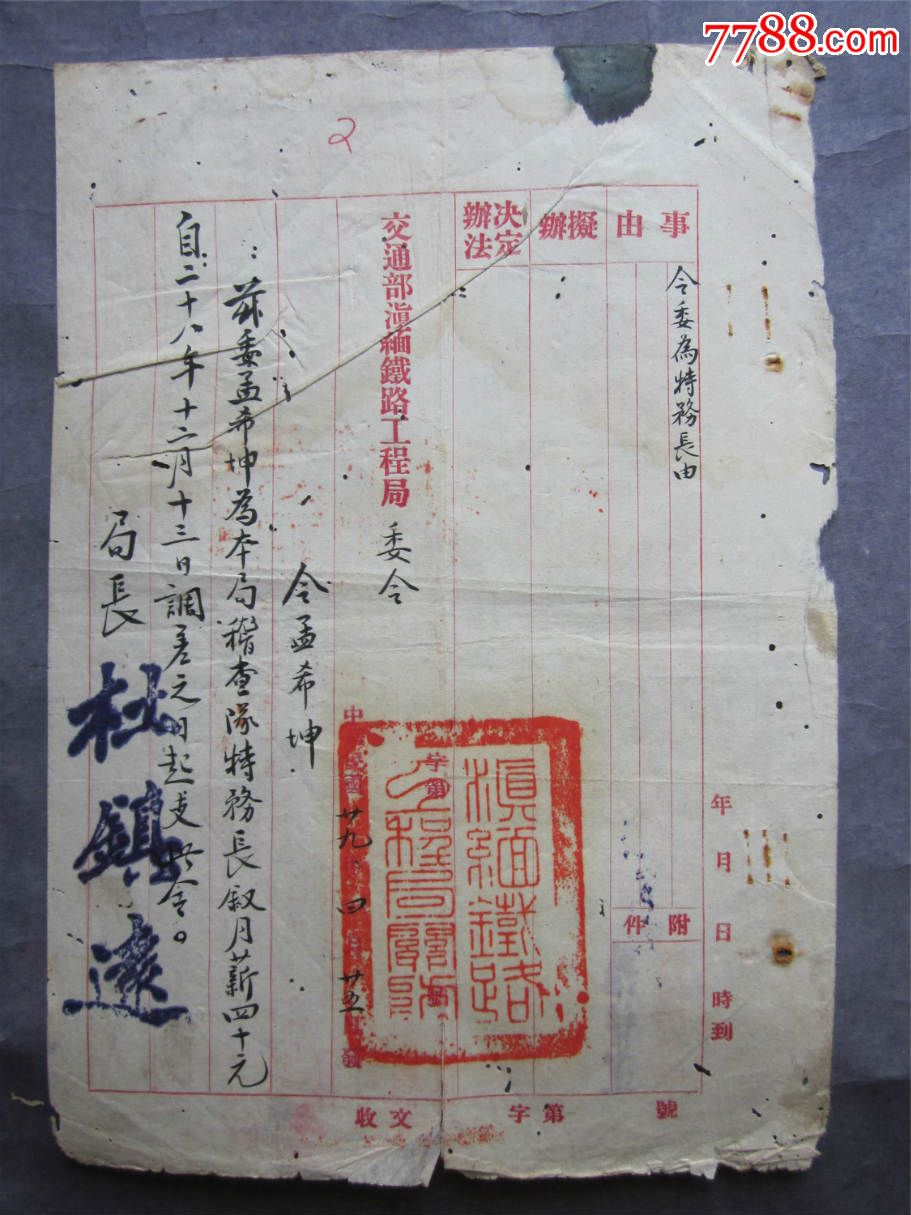 7788.com
2
事由
擬辦
决定辦法
令委為特務長由
附件
年月日時到
交通部滇緬鐵路工程局
委令
令孟希坤
茲委孟希坤為本局稽查隊特務長敘月薪四十元
自二十八年十二月十三日調差之日起支此令。
局長
杜鎮遠
中
廿九 四 廿五
發
字第
滇緬鐵路
工程局關防
收文 字第 號